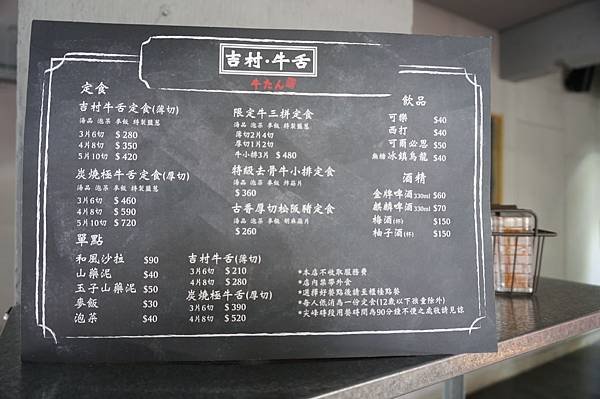 吉村·牛舌
牛たん
定食
吉村牛舌定食(薄切)
湯品 泡菜 麥飯 特製鹽蔥
3片6切 $280
4片8切 $350
5片10切 $420
炭燒極牛舌定食(厚切)
湯品 泡菜 麥飯 特製鹽蔥
3片6切 $460
4片8切 $590
5片10切 $720
單點
和風沙拉 $90
山藥泥 $40
玉子山藥泥 $50
麥飯 $30
泡菜 $40
限定牛三拼定食
湯品 泡菜 麥飯 特製鹽蔥
薄切2片4切
厚切1片2切
牛小排3片 $480
特級去骨牛小排定食
湯品 泡菜 麥飯 蒜片
$360
古早厚切松阪豬定食
湯品 泡菜 麥飯
$260
吉村牛舌(薄切)
3片6切 $210
4片8切 $280
炭燒極牛舌(厚切)
3片6切 $390
4片8切 $520
飲品
可樂 $40
西打 $40
可爾必思 $50
無糖冰鎮烏龍 $40
酒精
金牌啤酒330ml $60
麒麟啤酒330ml $70
梅酒(杯) $150
柚子酒(杯) $150
*本店不收取服務費
*店內禁帶外食
*選擇好餐點後請至櫃檯點餐
*每人低消為一份定食(12歲以下孩童除外)
*尖峰時段用餐時間為90分鐘不便之處敬請見諒